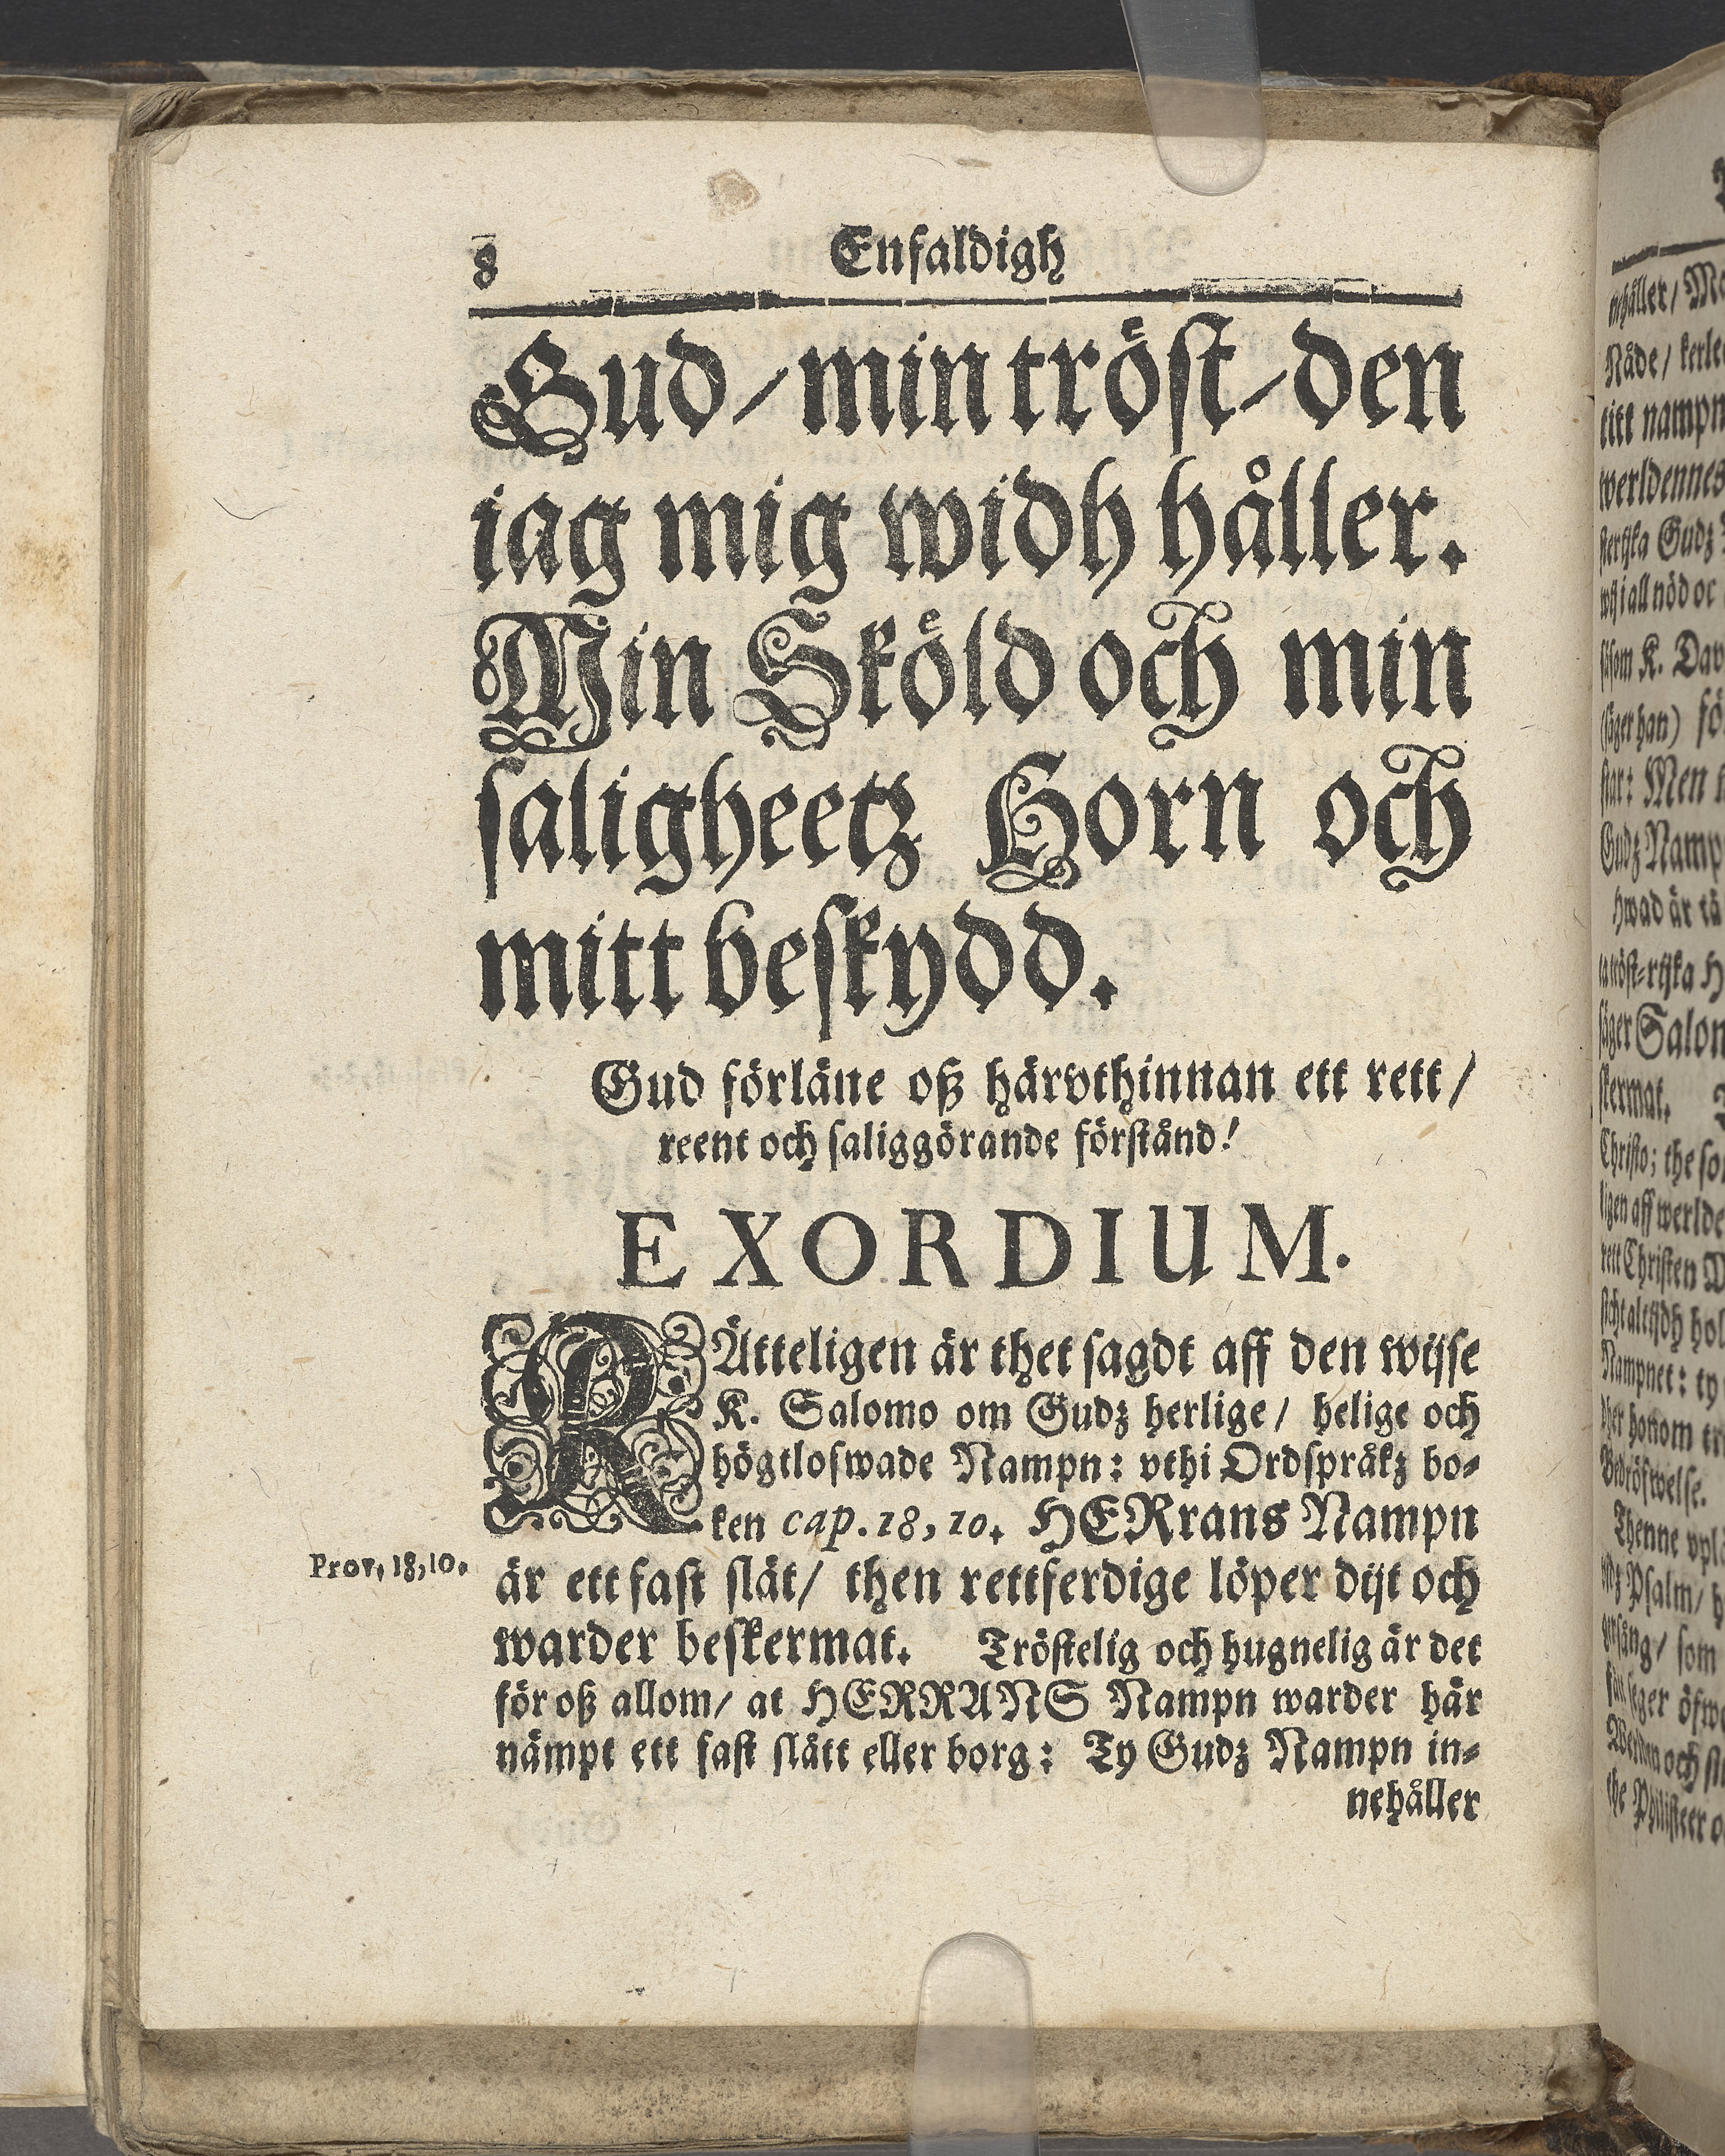 8 Enfaldigh
Gud / min tröst / den
iag mig widh håller.
Min Sköld och min
saligheetz Horn och
mitt beskydd.
Gud förläne oß härvthinnan ett rett /
reent och saliggörande förstånd!
EXORDIUM.
RÄtteligen är thet sagdt aff den wijse
K. Salomo om Gudz herlige / helige och
högtlofwade Nampn: vthi Ordspråkz bo-
ken cap. 18, 10. HERrans Nampn
Prov. 18,10.
är ett fast slåt / then rettferdige löper dijt och
warder beskermat. Tröstelig och hugnelig är det
för oß allom / at HERRANS Nampn warder här
nämpt ett fast slått eller borg: Ty Gudz Nampn in-
nehåller